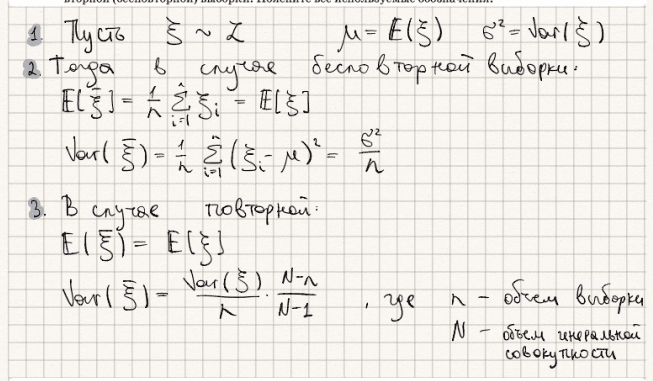 вторной (бесповторной) выборки. Поясните все используемые обозначения.
1. Пусть ξ ~ Z μ = E(ξ) σ² = Var(ξ)
2. Тогда в случае бесповторной виборки:
E[ξ̅] = 1/n ∑ᵢ₌₁ⁿ ξᵢ = E[ξ]
Var(ξ̅) = 1/n ∑ᵢ₌₁ⁿ (ξᵢ - μ)² = σ²/n
3. В случае повторной:
E(ξ̅) = E[ξ]
Var(ξ̅) = Var(ξ)/n · N-n/N-1 , где n - объем выборки
N - объем инеральной
совокупности